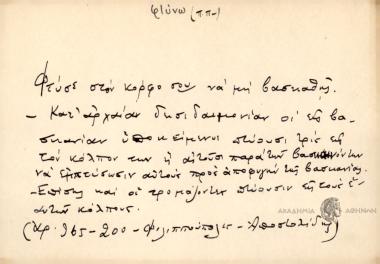 φτύνω (π.π.)
Φτύσε στον κόρφο σου να μη βασκαθής.
– Κατ' αρχαίαν δεισιδαιμονίαν οι εις βα-
σκανίαν υποκείμενοι πτύουσι τρις εις
τον κόλπον των ή αιτούσι παρά των βασκαινόντων
να εμπτύσωσιν αυτούς προς αποφυγήν της βασκανίας.
– Επίσης και οι τρομάζοντες πτύουσιν εις τους ε-
αυτών κόλπους.
(Χρ. 965 - 200 - Φιλιππούπολις - Αποστολίδης)
ΑΚΑΔΗΜΙΑ ΑΘΗΝΩΝ